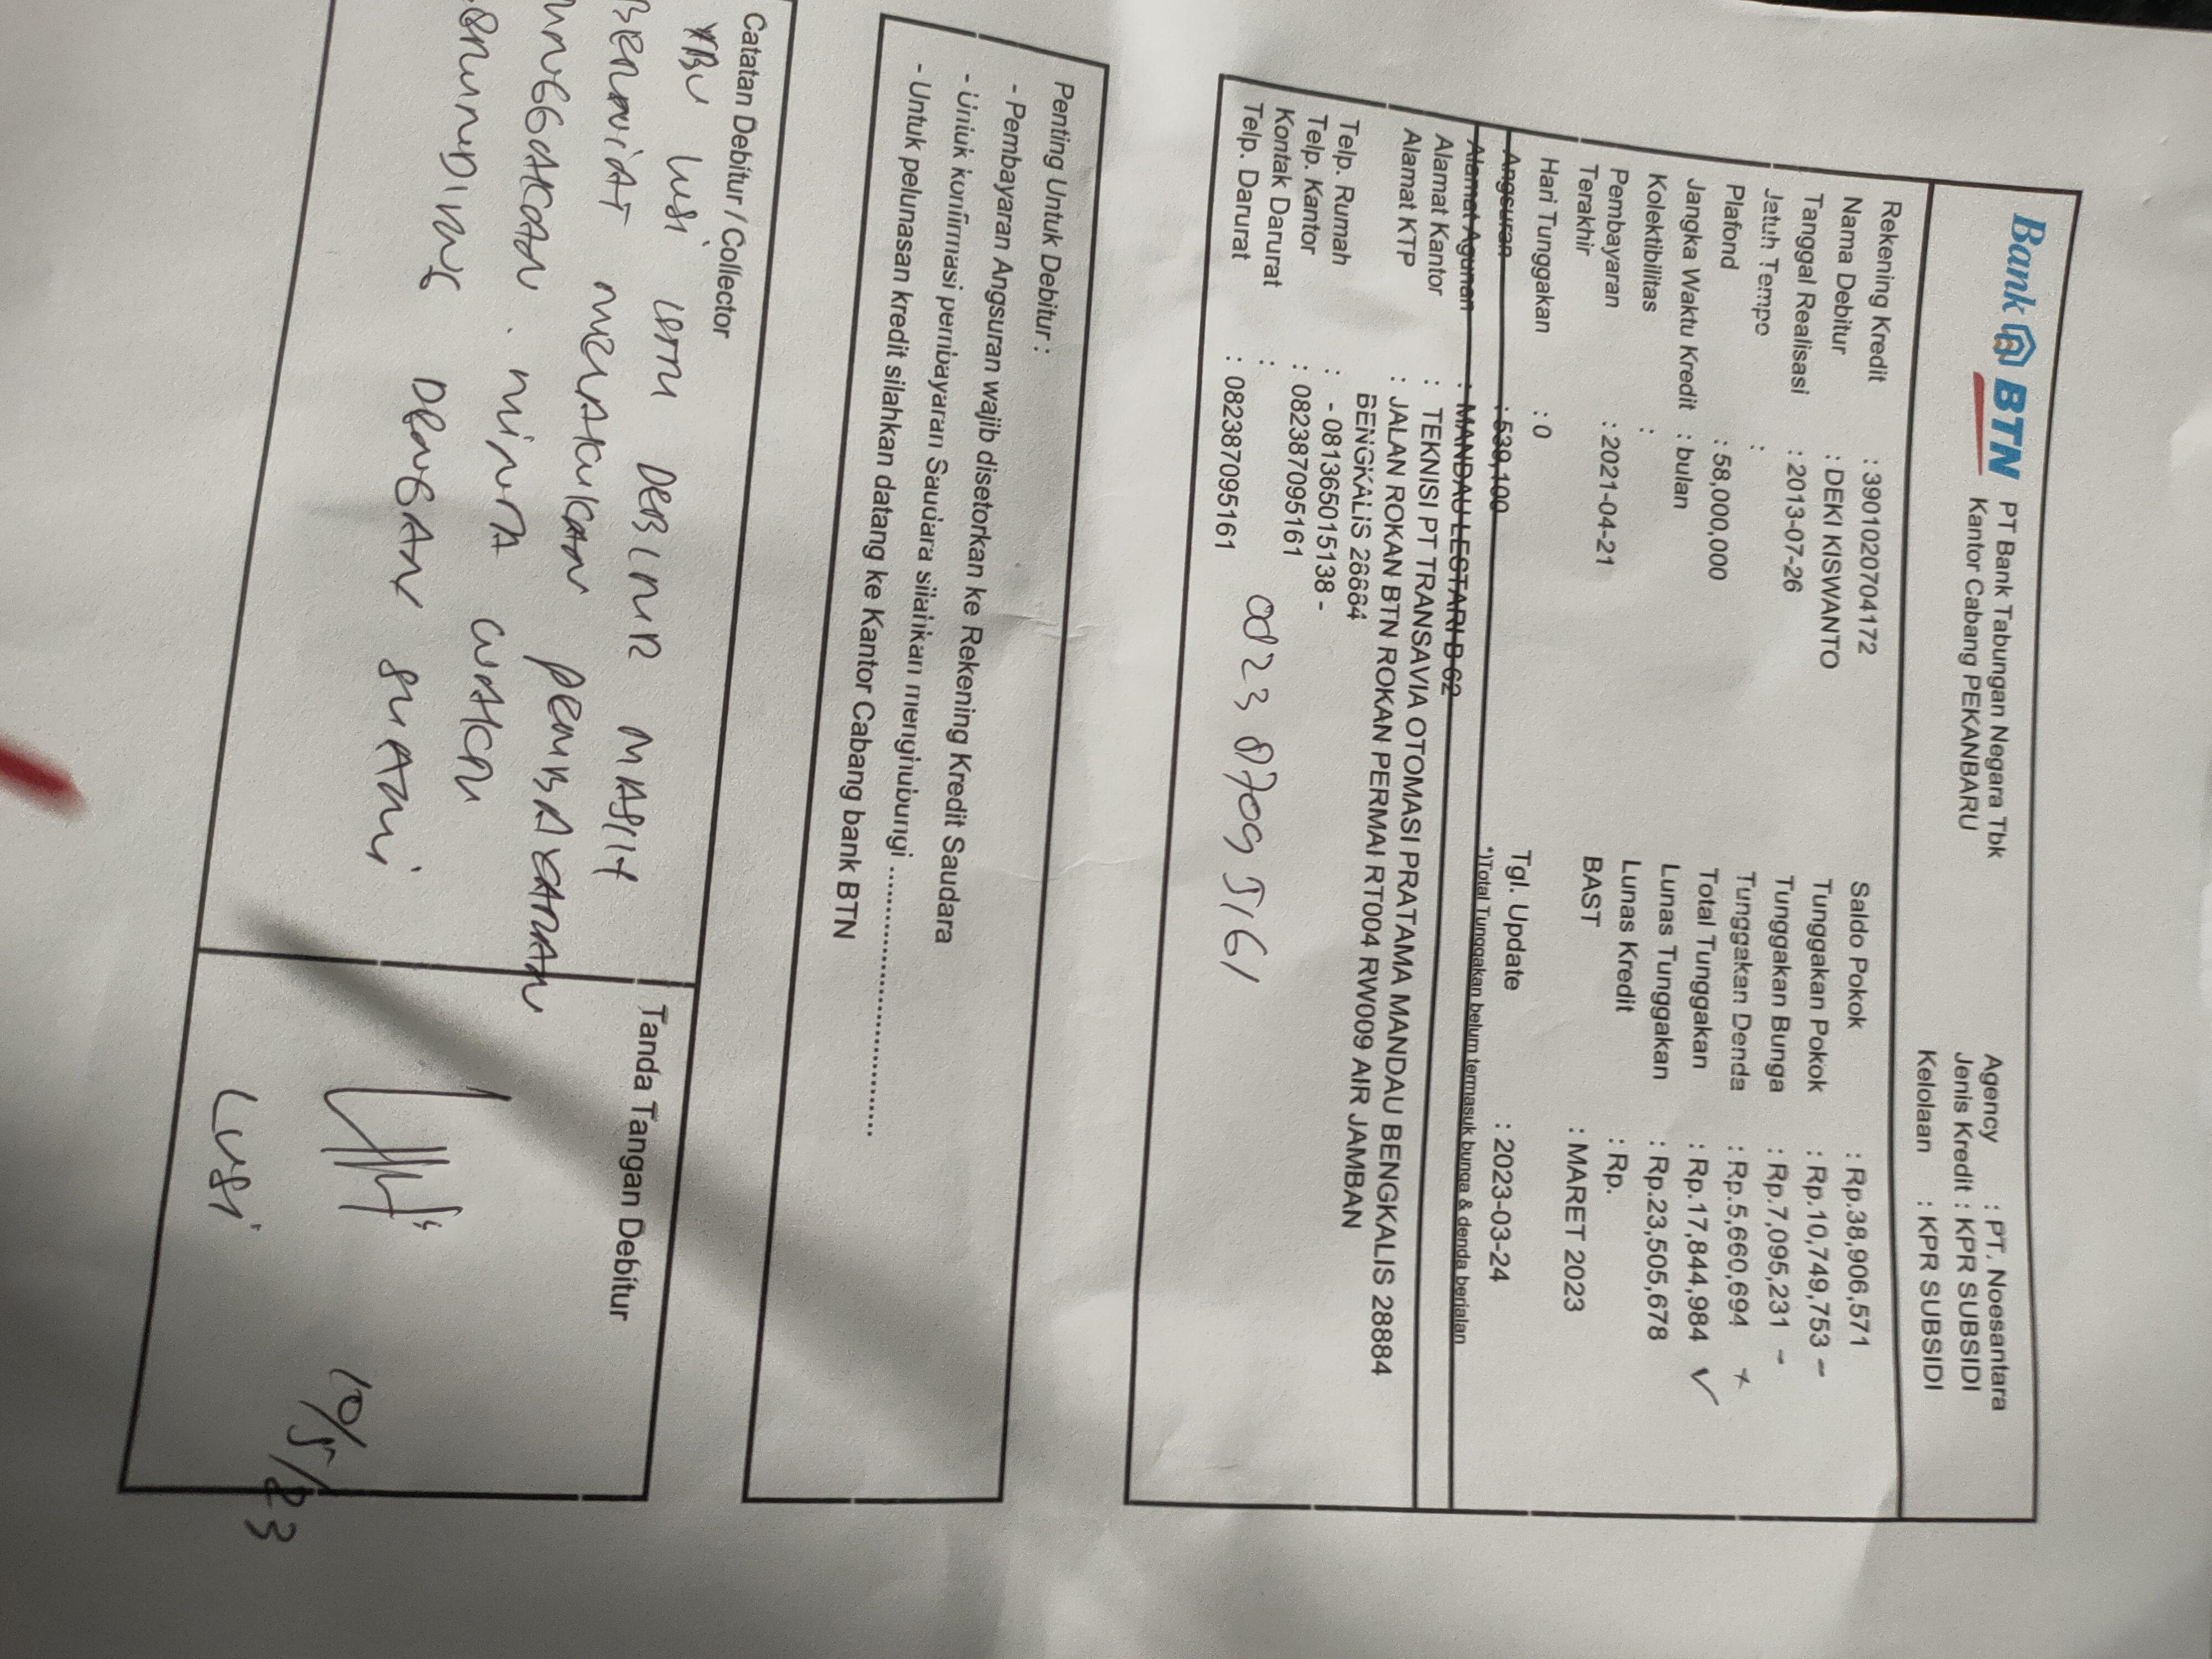 Bank BTN
PT Bank Tabungan Negara Tbk
Kantor Cabang PEKANBARU
Agency : PT. Noesantara
Jenis Kredit : KPR SUBSIDI
Kelolaan : KPR SUBSIDI
Rekening Kredit : 3901020704172
Nama Debitur : DEKI KISWANTO
Tanggal Realisasi : 2013-07-26
Jatuh Tempo :
Plafond : 58,000,000
Jangka Waktu Kredit : bulan
Kolektibilitas :
Pembayaran Terakhir : 2021-04-21
Hari Tunggakan : 0
Angsuran : 539,100
Saldo Pokok : Rp.38,906,571
Tunggakan Pokok : Rp.10,749,753 -
Tunggakan Bunga : Rp.7,095,231 -
Tunggakan Denda : Rp.5,660,694 x
Total Tunggakan : Rp.17,844,984 ✓
Lunas Tunggakan : Rp.23,505,678
Lunas Kredit : Rp.
BAST : MARET 2023
Tgl. Update : 2023-03-24
*)Total Tunggakan belum termasuk bunga & denda berjalan
Alamat Agunan : MANDAU LESTARI B 62
Alamat Kantor : TEKNISI PT TRANSAVIA OTOMASI PRATAMA MANDAU BENGKALIS 28884
Alamat KTP : JALAN ROKAN BTN ROKAN PERMAI RT004 RW009 AIR JAMBAN
BENGKALIS 28884
Telp. Rumah : - 081365015138 -
Telp. Kantor : 082387095161
Kontak Darurat :
Telp. Darurat : 082387095161
0823 8709 5161
Penting Untuk Debitur :
- Pembayaran Angsuran wajib disetorkan ke Rekening Kredit Saudara
- Untuk konfirmasi pembayaran Saudara silahkan menghubungi ..............................
- Untuk pelunasan kredit silahkan datang ke Kantor Cabang bank BTN
Catatan Debitur / Collector
YBU lusi istri DEBITUR MASIH
BERNIAT MELAKUKAN PEMBAYARAN
MINTA WAKTU
DENGAN SUAMI
Tanda Tangan Debitur
Lusi
10/5/23